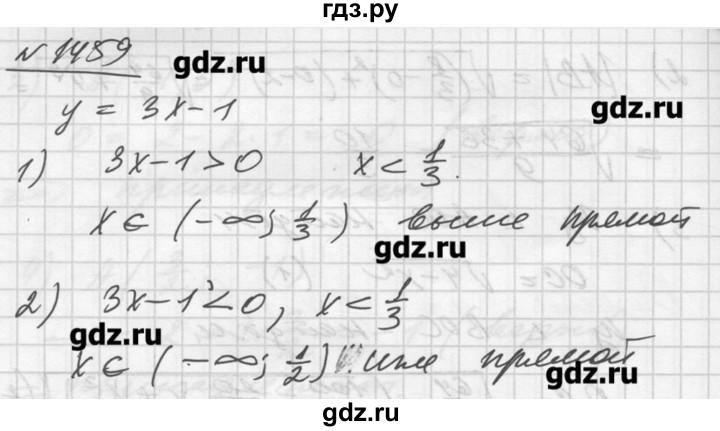 гдз.ру
N 1489
gdz.ru
y = 3x-1
gdz.ru
1) 3x-1>0 x < 1/3.
x ∈ (-∞; 1/3) выше прямой
gdz.ru
2) 3x-1<0, x < 1/3
gdz.ru
x ∈ (-∞; 1/2) прямой
gdz.ru
gdz.ru